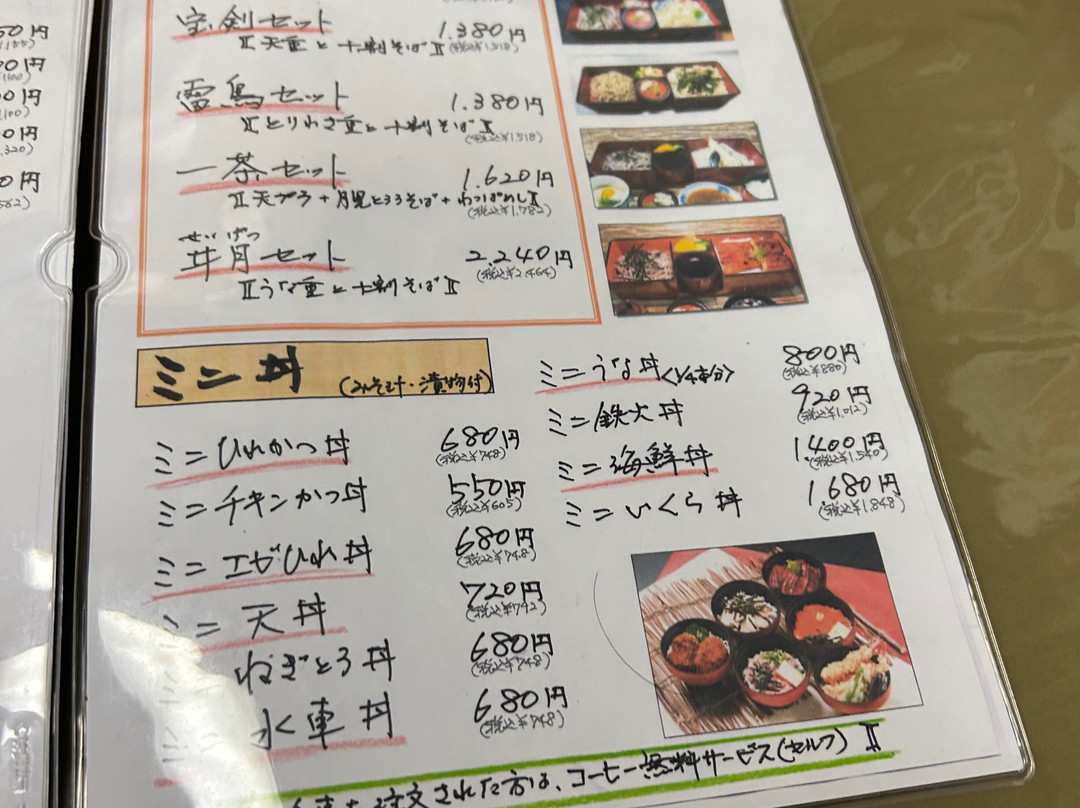 50円
00円
(100)
00円
(100)
10円
1,320)
0円
宝剣セット 1.380円
〝天重と十割そば〟 (税込¥1,518)
雷鳥セット 1.380円
〝とりわさ重と十割そば〟 (税込¥1,518)
一茶セット 1.620円
〝天プラ+月見とろろそば+わっぱめし〟 (税込¥1,782)
せいげつ
井月セット 2.240円
〝うな重と十割そば〟 (税込¥2,464)
ミニ丼 (みそ汁・漬物付)
ミニひれかつ丼 680円
(税込¥748)
ミニチキンかつ丼 550円
(税込¥605)
ミニエビひれ丼 680円
(税込¥748)
ミニ天丼 720円
(税込¥792)
ミニねぎとろ丼 680円
(税込¥748)
ミニ水車丼 680円
(税込¥748)
ミニうな丼〈1/4本分〉 800円
(税込¥880)
ミニ鉄火丼 920円
(税込¥1,012)
ミニ海鮮丼 1400円
(税込¥1,540)
ミニいくら丼 1.680円
(税込¥1,848)
注文された方は、コーヒー無料サービス(セルフ)〟